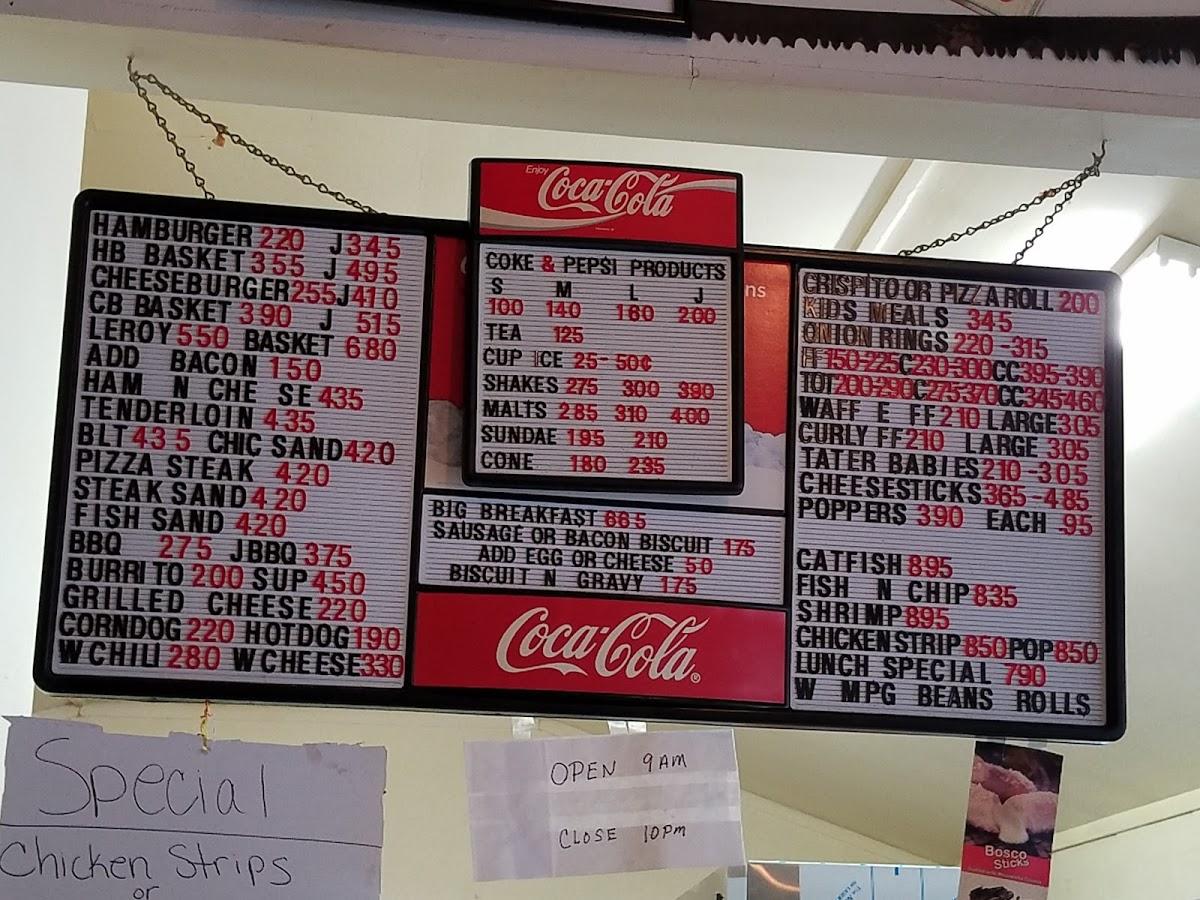 HAMBURGER 220 J 345
HB BASKET 355 J 495
CHEESEBURGER 255 J 410
CB BASKET 390 J 515
LEROY 550 BASKET 680
ADD BACON 150
HAM N CHE SE 435
TENDERLOIN 435
BLT 435 CHIC SAND 420
PIZZA STEAK 420
STEAK SAND 420
FISH SAND 420
BBQ 275 JBBQ 375
BURRITO 200 SUP 450
GRILLED CHEESE 220
CORNDOG 220 HOTDOG 190
W CHILI 280 W CHEESE 330
Enjoy
Coca-Cola
COKE & PEPSI PRODUCTS
S M L J
100 140 160 200
TEA 125
CUP ICE 25-50¢
SHAKES 275 300 390
MALTS 285 310 400
SUNDAE 195 210
CONE 180 235
BIG BREAKFAST 665
SAUSAGE OR BACON BISCUIT 175
ADD EGG OR CHEESE 50
BISCUIT N GRAVY 175
Coca-Cola
CRISPITO OR PIZZA ROLL 200
KIDS MEALS 345
ONION RINGS 220-315
FF 150-225 C 230-300 CC 395-390
TOT 200-290 C 275-370 CC 345-460
WAFF E FF 210 LARGE 305
CURLY FF 210 LARGE 305
TATER BABIES 210-305
CHEESESTICKS 365-485
POPPERS 390 EACH .95
CATFISH 895
FISH N CHIP 835
SHRIMP 895
CHICKEN STRIP 850 POP 850
LUNCH SPECIAL 790
W MPG BEANS ROLLS
Special
Chicken Strips
or
OPEN 9AM
CLOSE 10PM
Bosco
Sticks